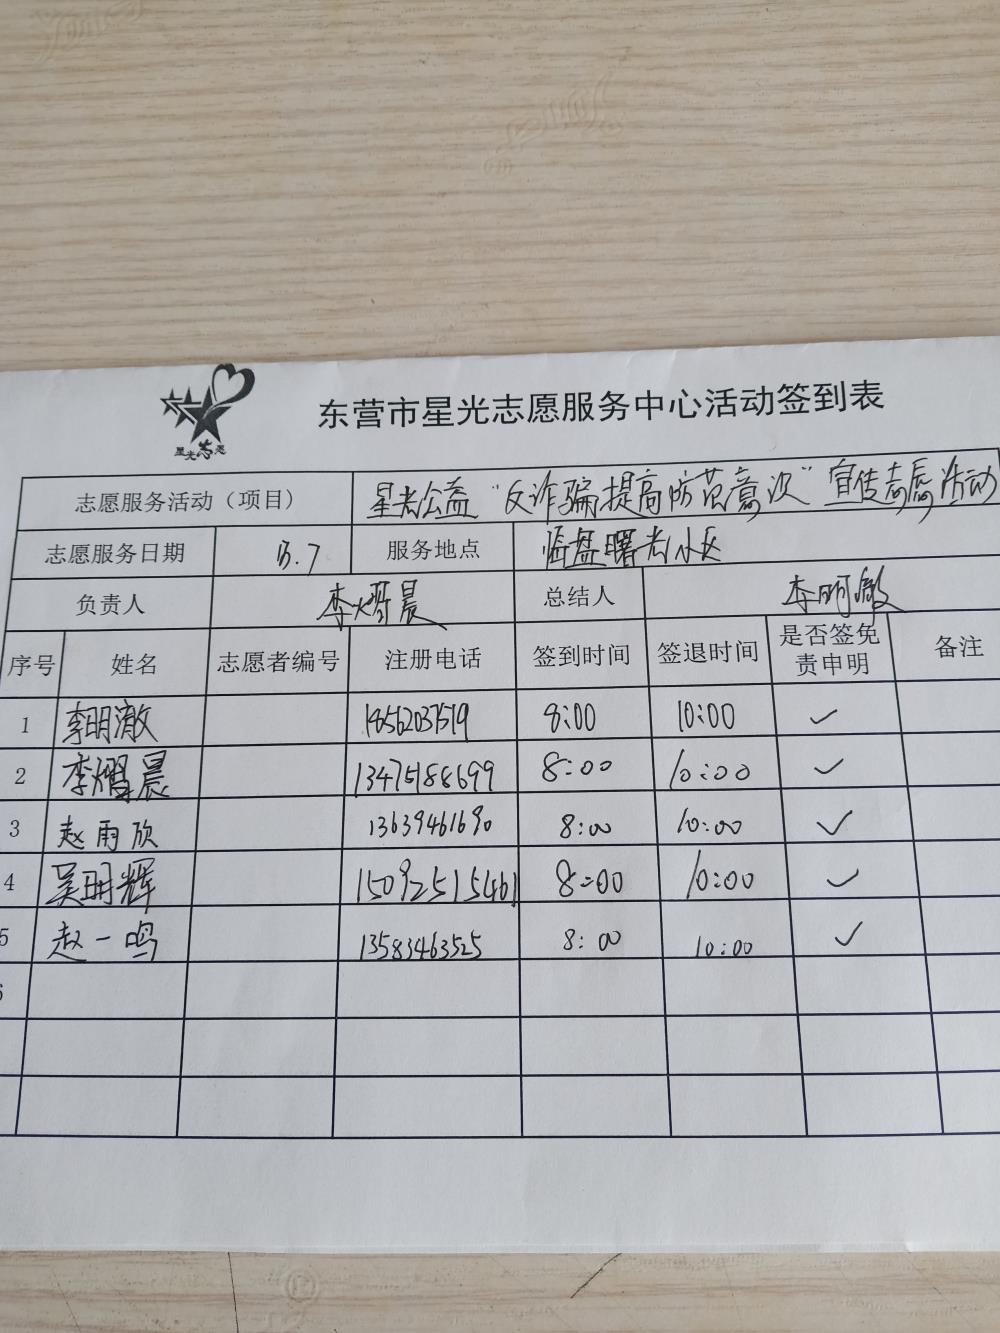 星光志愿
东营市星光志愿服务中心活动签到表
志愿服务活动（项目） 星光公益“反诈骗提高防范意识”宣传志愿活动
志愿服务日期 5.7 服务地点 临盘曙光小区
负责人 李熠晨 总结人 李明澈
序号 姓名 志愿者编号 注册电话 签到时间 签退时间 是否签免责申明 备注
1 李明澈 18562037519 8:00 10:00 ✓
2 李熠晨 13475188699 8:00 10:00 ✓
3 赵雨欣 13639461690 8:00 10:00 ✓
4 吴明辉 15092515461 8:00 10:00 ✓
5 赵一鸣 13583463525 8:00 10:00 ✓
6